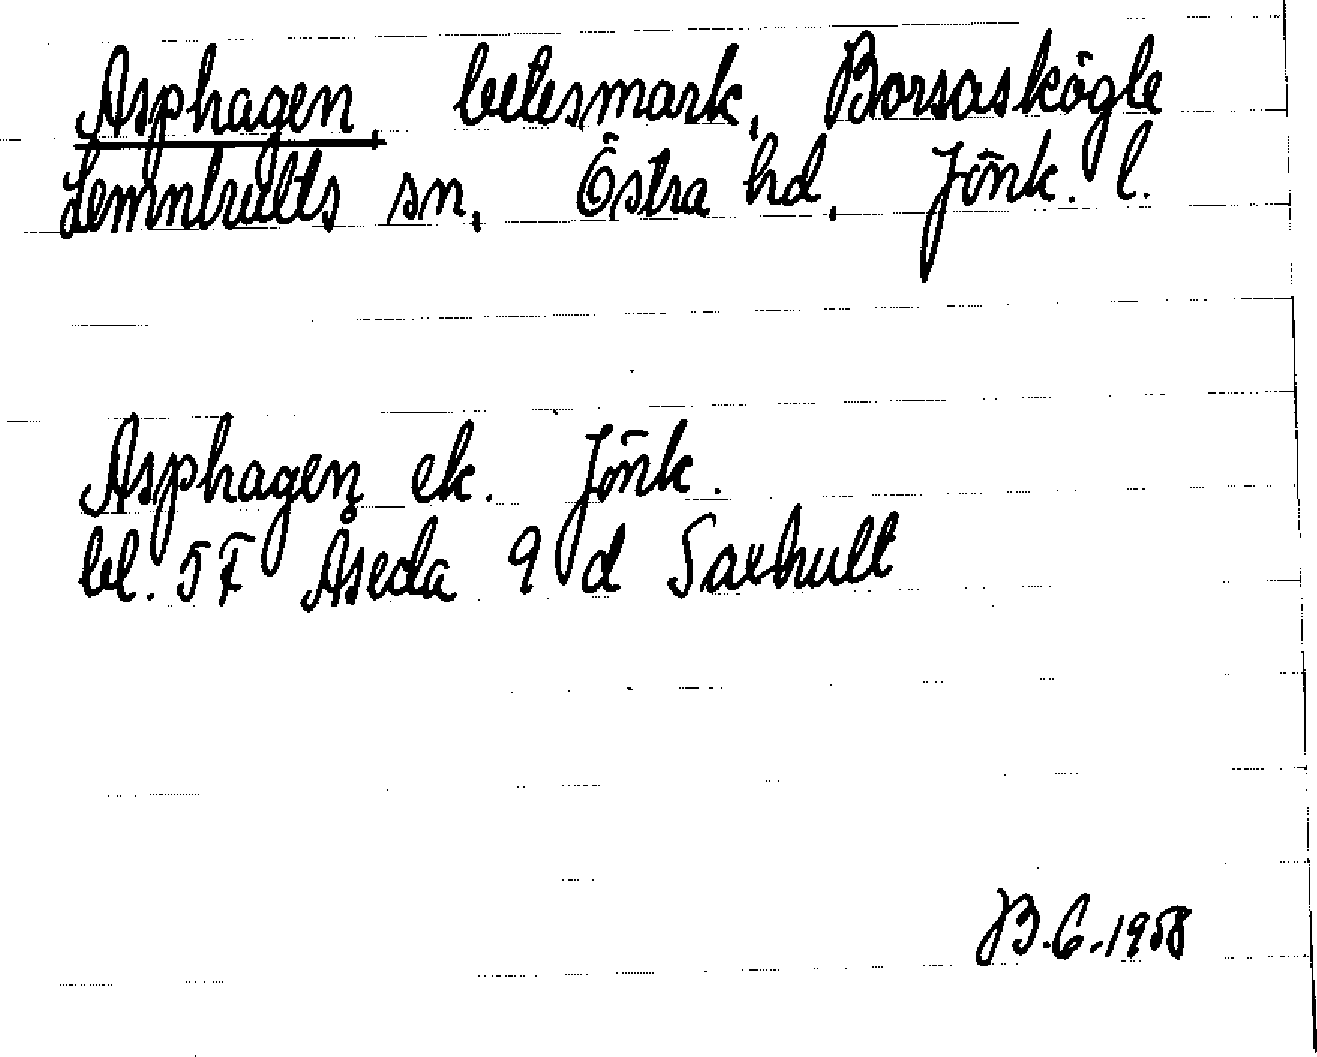 Asphagen, betesmark, Borsaskögle
Lemnhults sn, Östra hd, Jönk. l.
Asphagen ek. Jönk.
bl. 5F Åseda 9 d Saxhult
B.G.1958